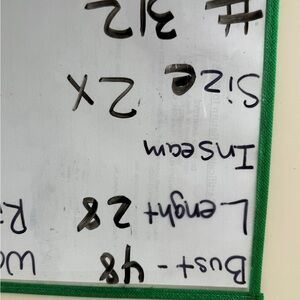 Bust - 48 Wa
Lenght 28 Ri
Inseam
Size 2X
# 312